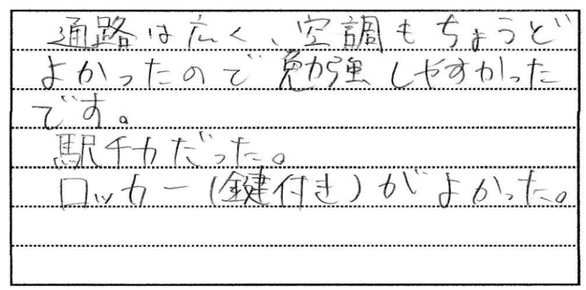 通路は広く、空調もちょうど
よかったので勉強しやすかった
です。
駅チカだった。
ロッカー(鍵付き)がよかった。